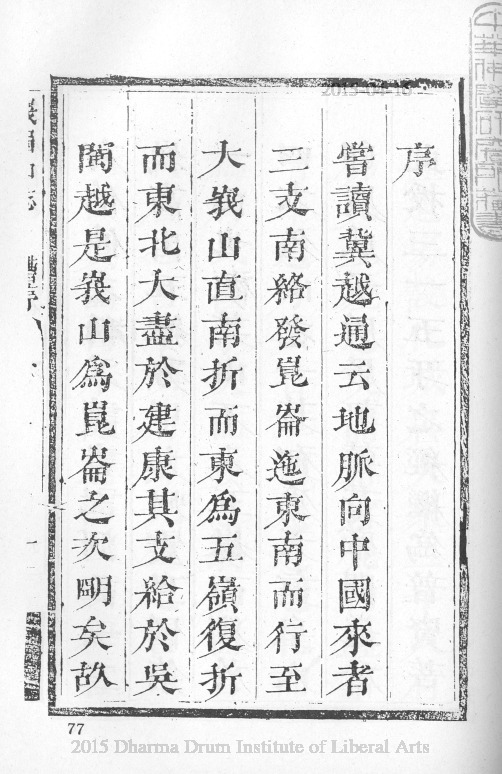 序
嘗讀冀越通云地脈向中國來者
三支南絡發崑崙迤東南而行至
大峩山直南折而東爲五嶺復折
而東北大盡於建康其支給於吳
閩越是峩山爲崑崙之次明矣故
77
2015 Dharma Drum Institute of Liberal Arts